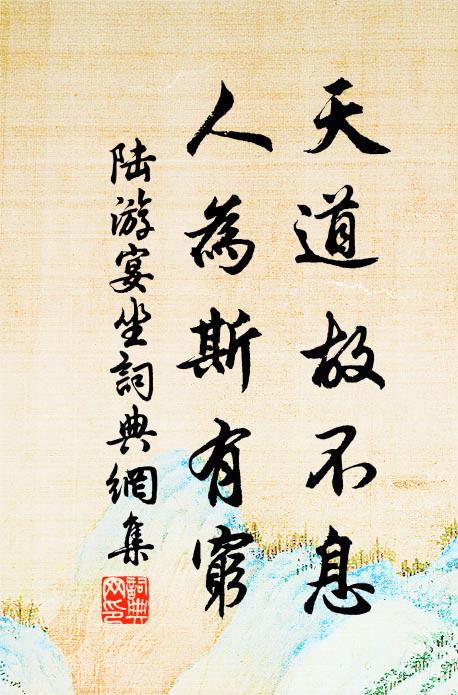 天道故不息
人為斯有窮
陆游宴坐詞典網集
詞典
网印